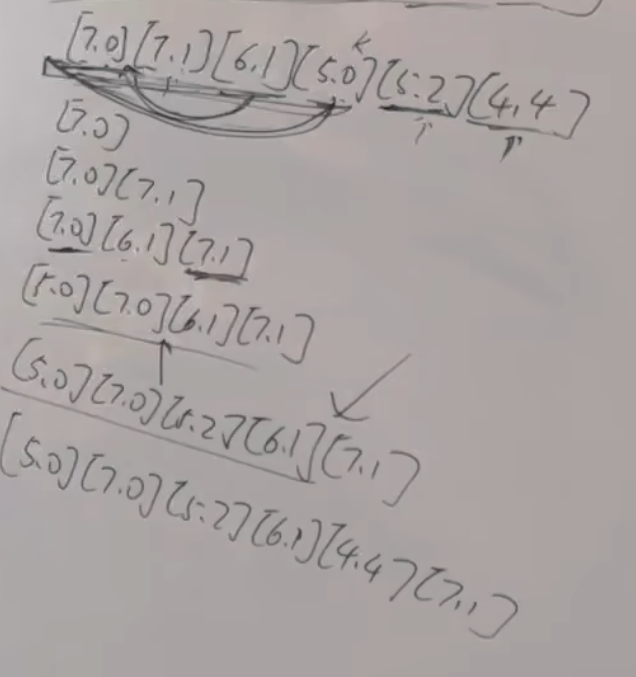 [7,0][7,1][6,1][5,0][5,2][4,4]
[7,0]
[7,0][7,1]
[7,0][6,1][7,1]
[5,0][7,0][6,1][7,1]
[5,0][7,0][5,2][6,1][7,1]
[5,0][7,0][5,2][6,1][4,4][7,1]